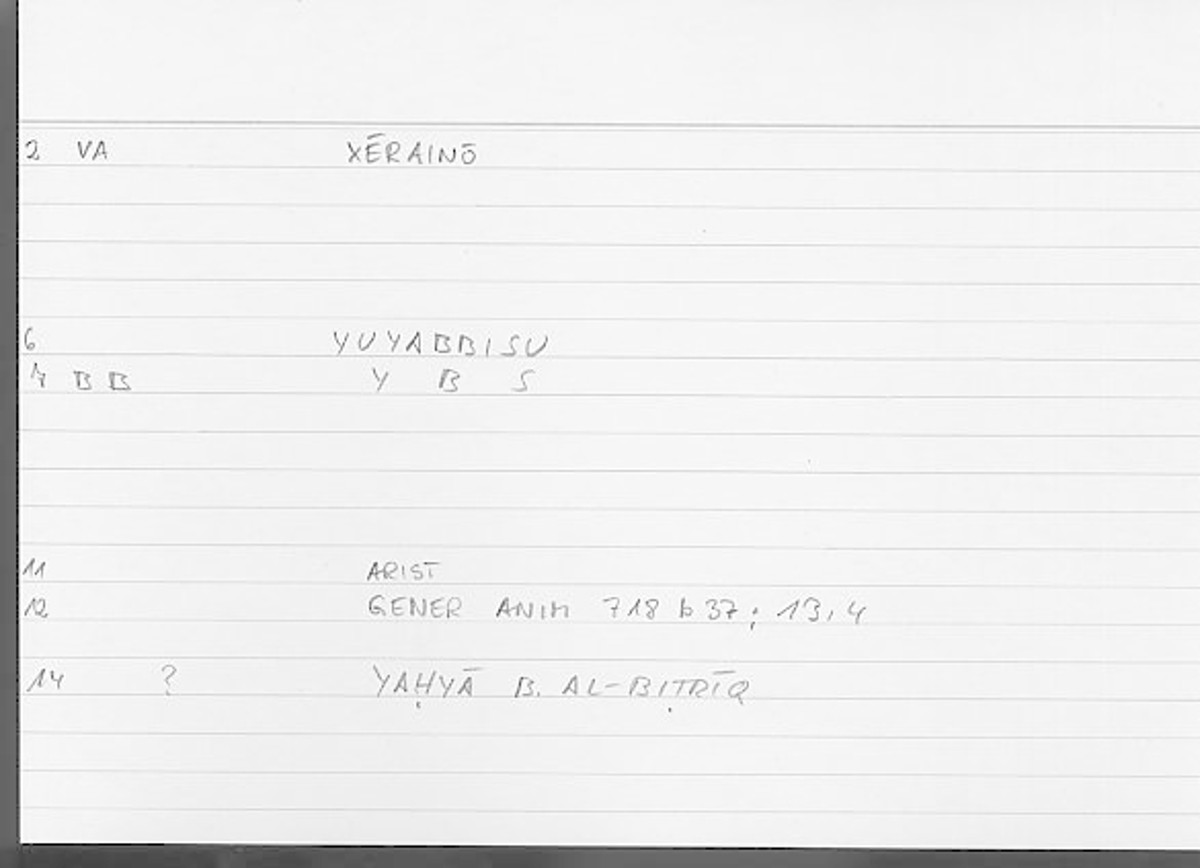 2 VA XĒRAINŌ
6 YUYABBISU
7 BB Y B S
11 ARIST
12 GENER ANIM 718 b 37; 13,4
14 ? YAḤYĀ B. AL-BIṬRĪQ